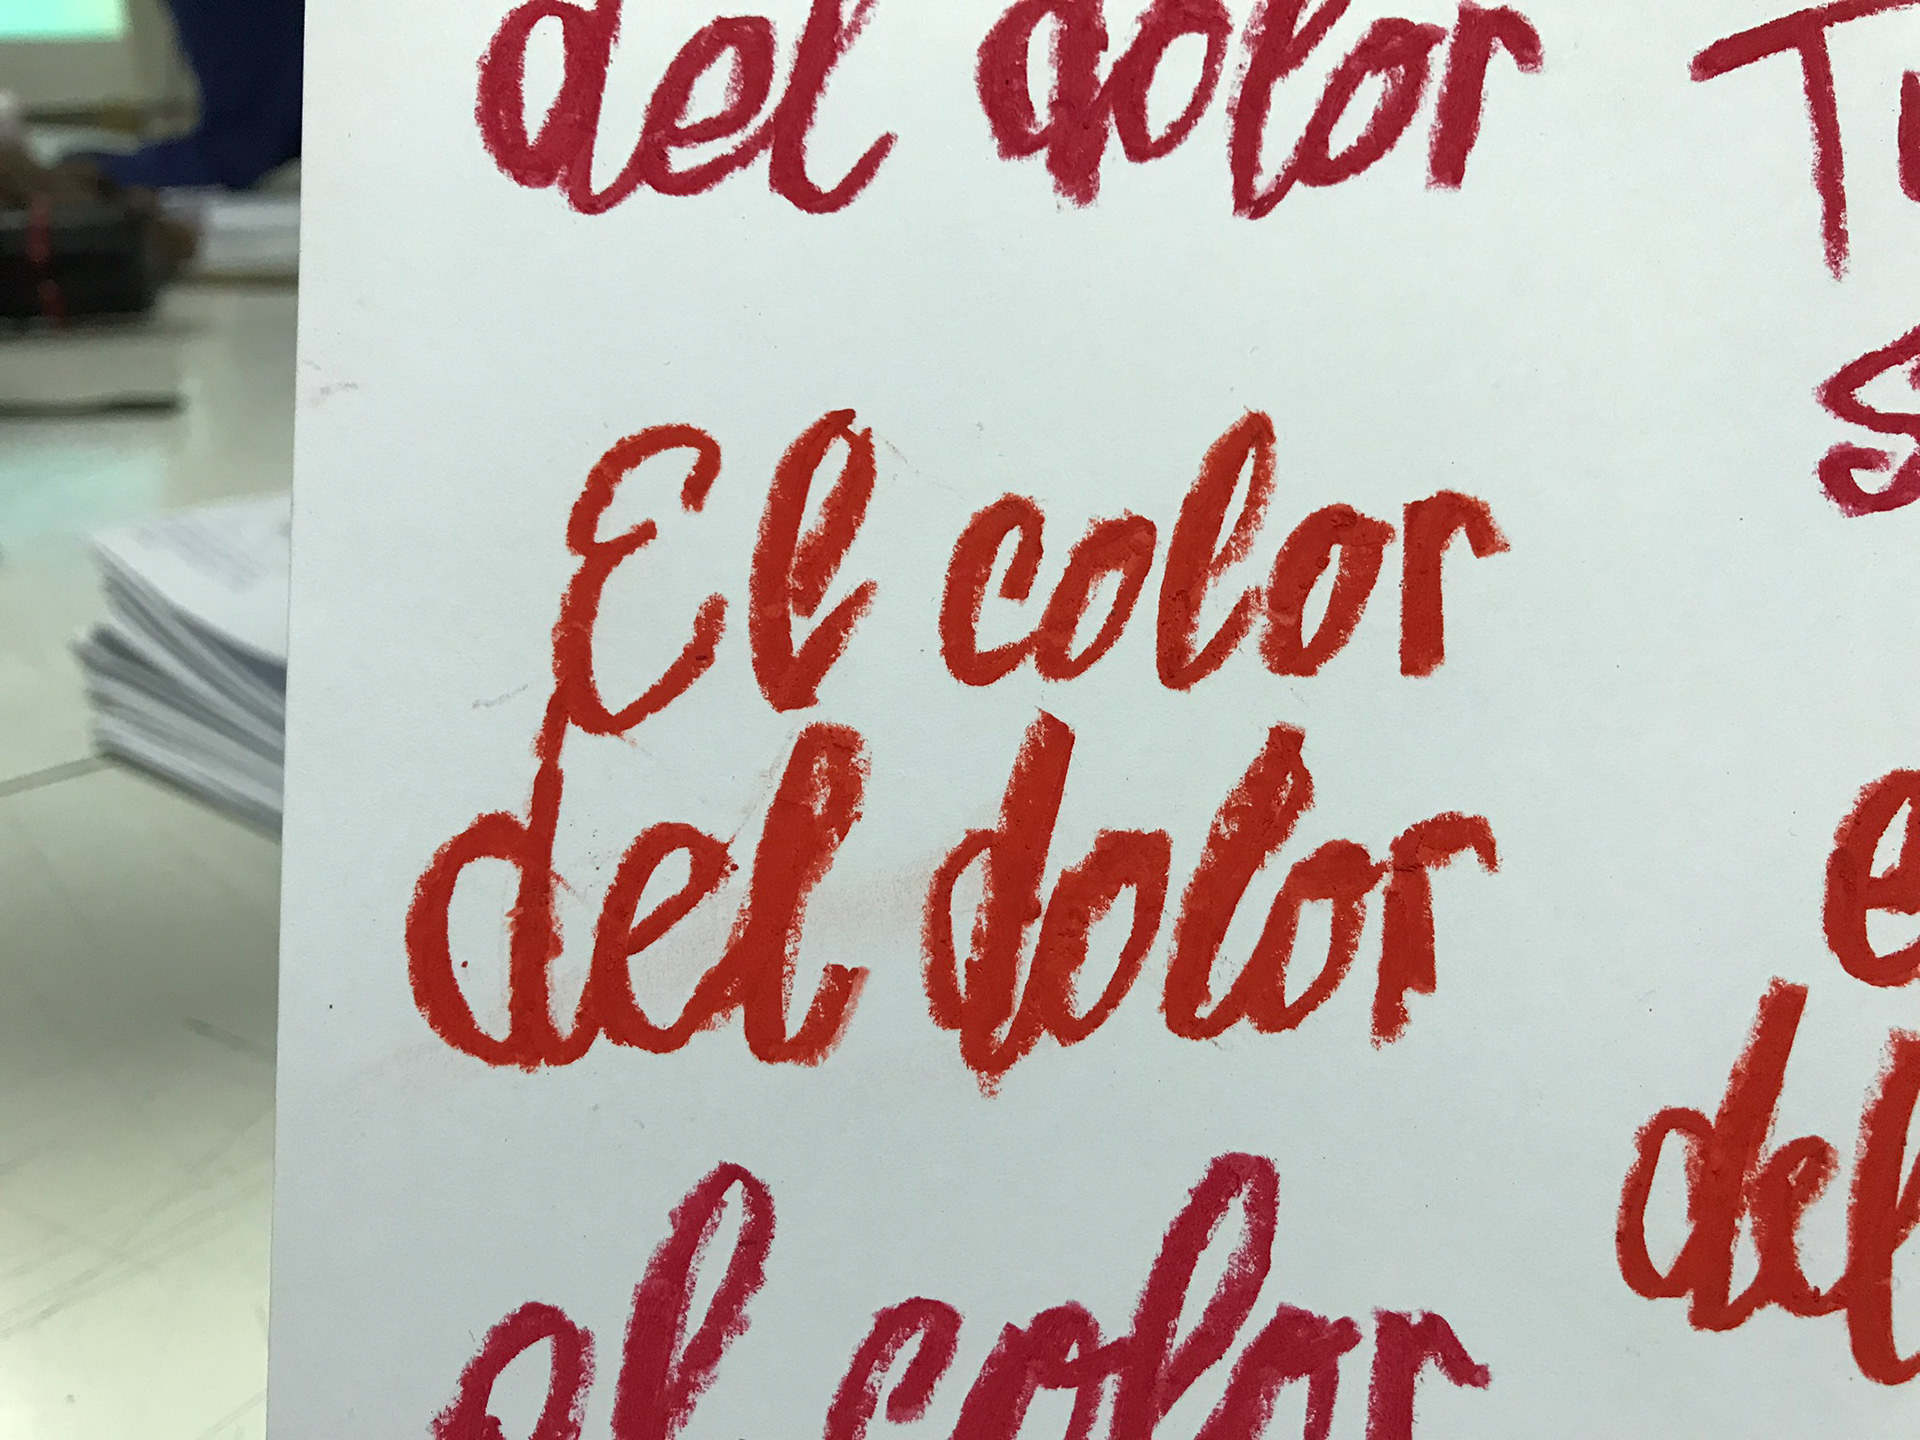 del dolor
El color
del dolor
el color
del